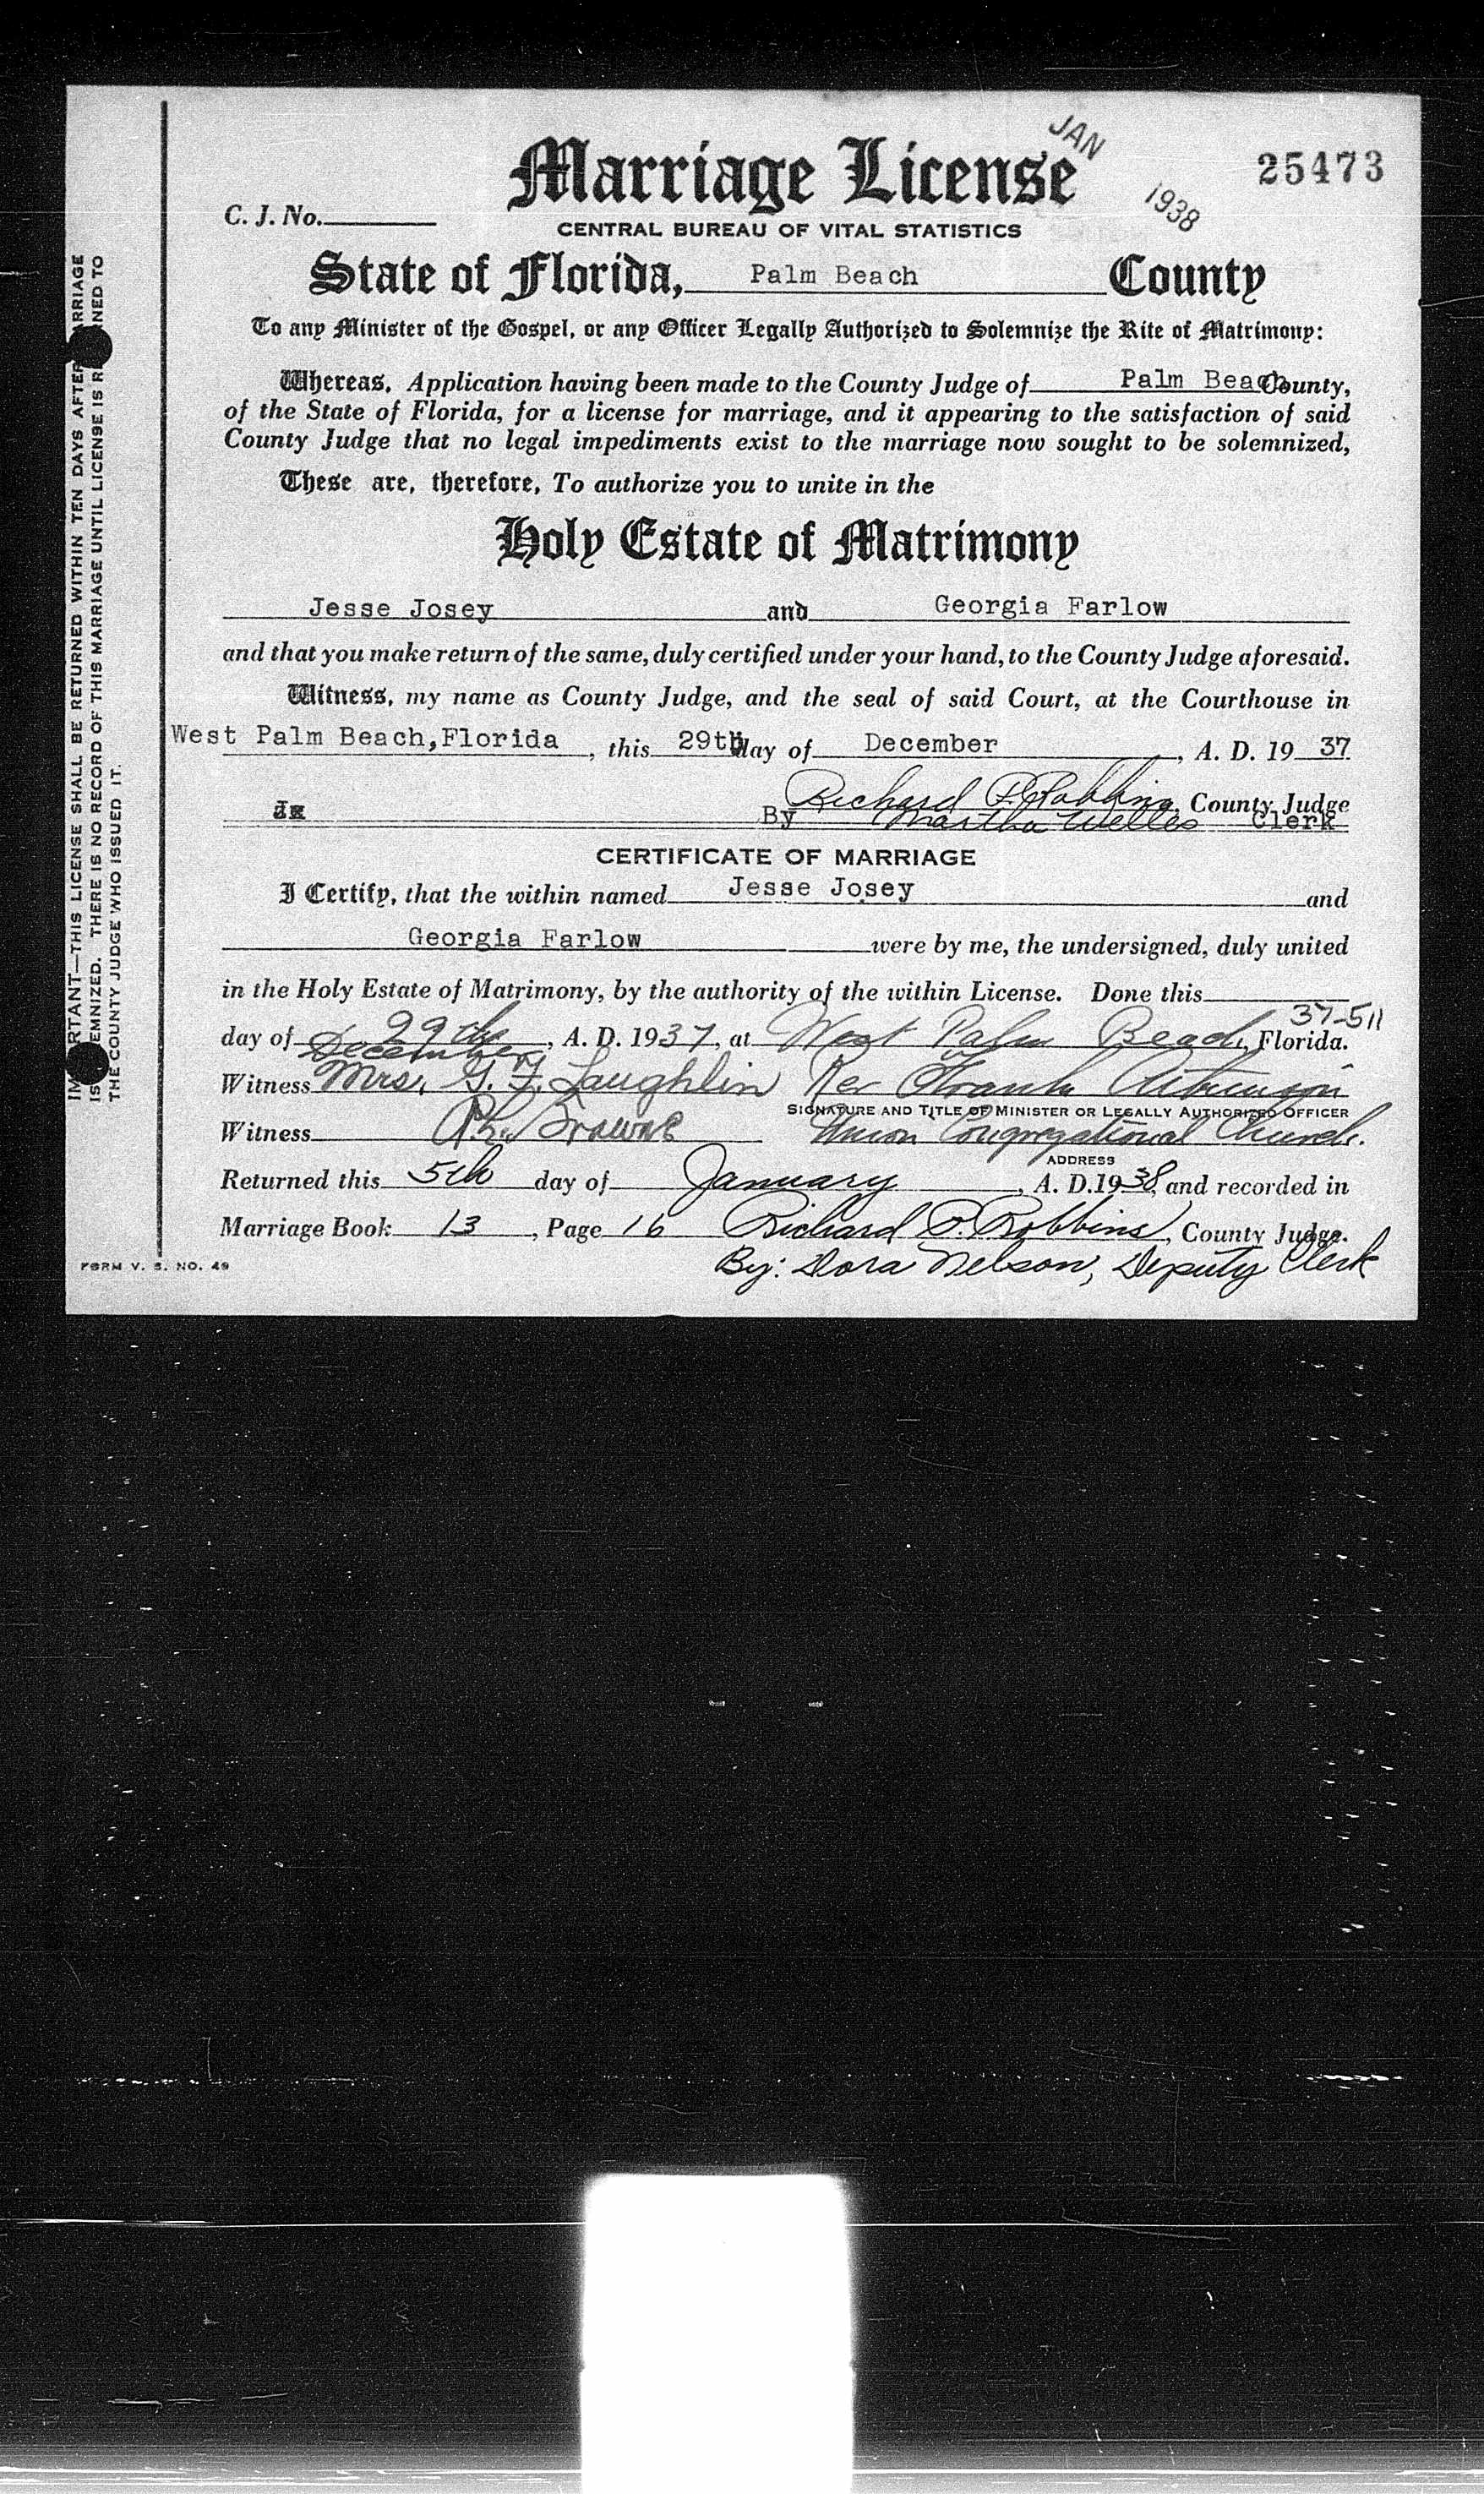 JAN
1938
25473
Marriage License
C. J. No.
CENTRAL BUREAU OF VITAL STATISTICS
State of Florida, Palm Beach County
To any Minister of the Gospel, or any Officer Legally Authorized to Solemnize the Rite of Matrimony:
Whereas, Application having been made to the County Judge of Palm Beach County,
of the State of Florida, for a license for marriage, and it appearing to the satisfaction of said
County Judge that no legal impediments exist to the marriage now sought to be solemnized,
These are, therefore, To authorize you to unite in the
Holy Estate of Matrimony
Jesse Josey and Georgia Farlow
and that you make return of the same, duly certified under your hand, to the County Judge aforesaid.
Witness, my name as County Judge, and the seal of said Court, at the Courthouse in
West Palm Beach, Florida, this 29th day of December, A. D. 19 37
Richard P. Robbins, County Judge
By Martha Welles Clerk
CERTIFICATE OF MARRIAGE
I Certify, that the within named Jesse Josey and
Georgia Farlow were by me, the undersigned, duly united
in the Holy Estate of Matrimony, by the authority of the within License. Done this
37-511
day of 29th December, A. D. 1937, at West Palm Beach, Florida.
Witness Mrs. G. F. Laughlin Rev Frank Atkinson
SIGNATURE AND TITLE OF MINISTER OR LEGALLY AUTHORIZED OFFICER
Witness Union Congregational Church.
ADDRESS
Returned this 5th day of January, A. D. 1938, and recorded in
Marriage Book 13, Page 16 Richard P. Robbins, County Judge.
By: Dora Nelson, Deputy Clerk
FORM V. S. NO. 49
IMPORTANT—THIS LICENSE SHALL BE RETURNED WITHIN TEN DAYS AFTER MARRIAGE
IS SOLEMNIZED. THERE IS NO RECORD OF THIS MARRIAGE UNTIL LICENSE IS RETURNED TO
THE COUNTY JUDGE WHO ISSUED IT.